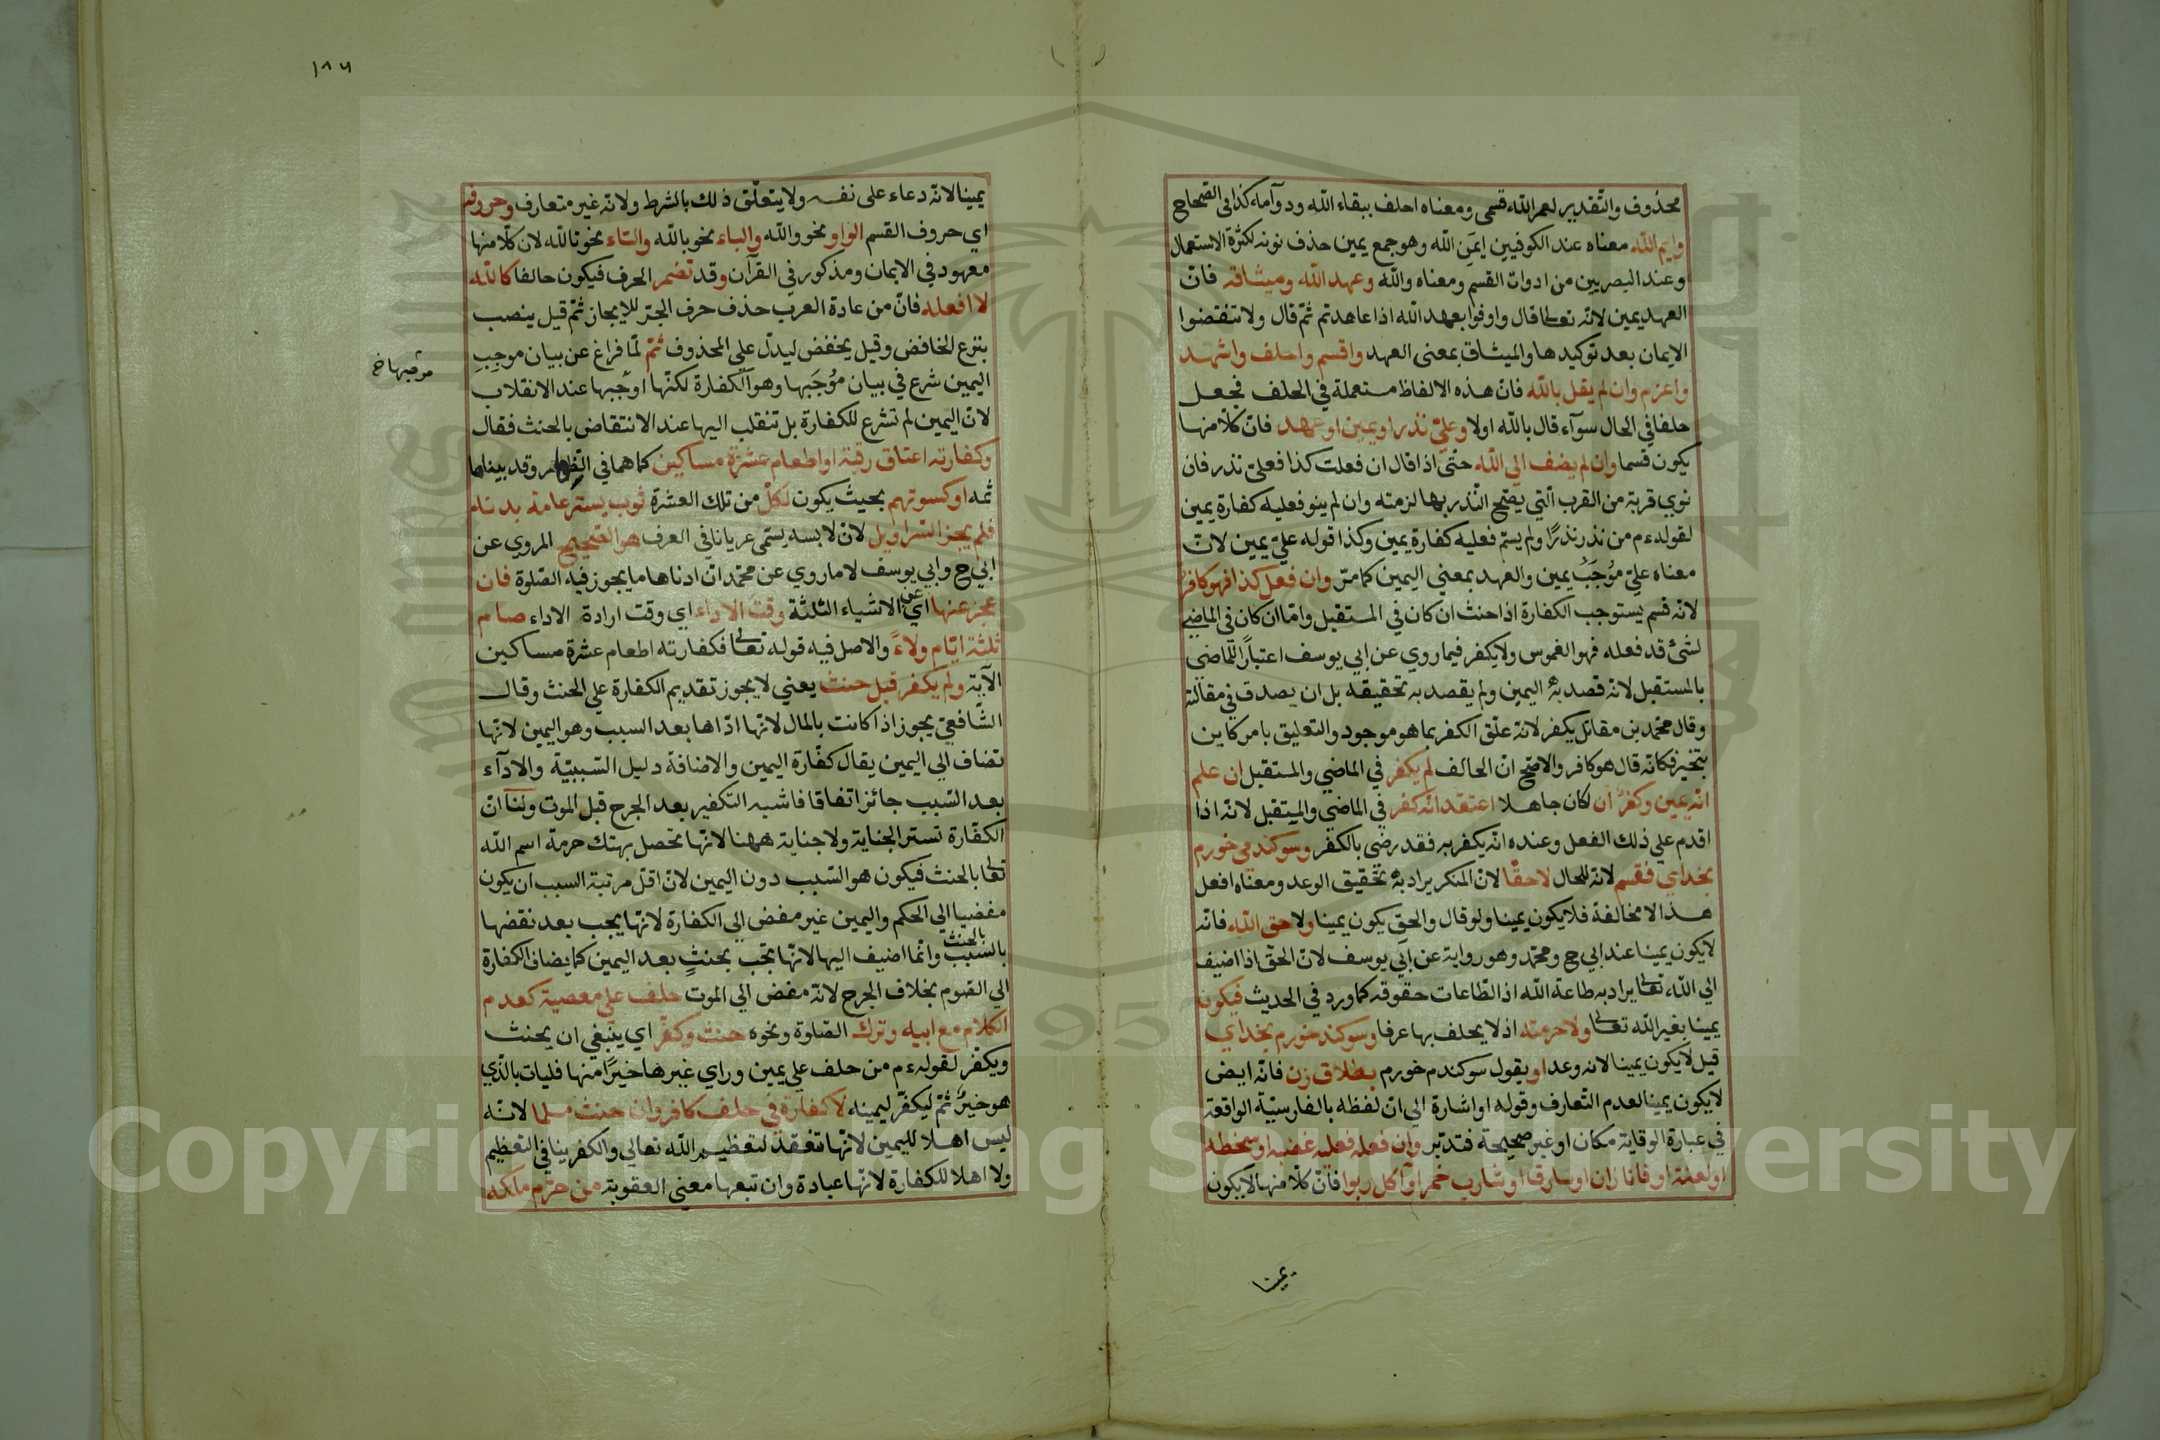 محذوف والتقدير لعمر الله قسمي ومعناه احلف ببقاء الله ودوامه كذا في الصحاح
وايم الله معناه عند الكوفيين ايمن الله وهو جمع يمين حذف نونه لكثرة الاستعمال
وعند البصريين من ادوات القسم ومعناه والله وعهد الله وميثاقه فان
العهد يمين لانه تعالى قال واوفوا بعهد الله اذا عاهدتم ثم قال ولا تنقضوا
الايمان بعد توكيدها والميثاق بمعنى العهد واقسم واحلف واشهد
واعزم وان لم يقل بالله فان هذه الالفاظ مستعملة في الحلف فجعل
حلفا في الحال سوآء قال بالله اولا وعليّ نذر او يمين او عهد فان كلا منها
يكون قسما وان لم يضف الي الله حتى اذا قال ان فعلت كذا فعليّ نذر فان
نوي قربة من القرب التي يصح النذر بها لزمته وان لم ينو فعليه كفارة يمين
لقوله ءم من نذر نذرًا ولم يسمّ فعليه كفارة يمين وكذا قوله عليّ يمين لانّ
معناه عليّ موُجَبُ يمين والعهد بمعني اليمين كما مرّ وان فعل كذا فهو كافر
لانه قسم يستوجب الكفارة اذا حنث ان كان في المستقبل واما ان كان في الماضي
لشئ قد فعله فهو الغموس ولا يكفر فيما روي عن ابي يوسف اعتبارًا للماضي
بالمستقبل لانه قصد به اليمين ولم يقصد به تحقيقه بل ان يصدق في مقالته
وقال محمد بن مقاتل يكفر لانه علّق الكفر بما هو موجود والتعليق بامر كاين
تنجيز فكانه قال هو كافر والاصح انّ الحالف لم يكفر في الماضي والمستقبل ان علم
انه يمين وكفر ان كان جاهلا اعتقد انه كفر في الماضي والمستقبل لانه اذا
اقدم علي ذلك الفعل وعنده انه يكفر به فقد رضي بالكفر وسوكند مي خورم
بخداي فقسم لانه للحال لا حقّا لانّ المنكر يراد به تحقيق الوعد ومعناه افعل
هذا لا مخالفة فلا يكون يمينا ولو قال والحق يكون يمينا ولا حق الله فانه
لا يكون يمينا عند ابي ح ومحمد وهو رواية عن ابي يوسف لانّ الحقّ اذا اضيف
الي الله تعالى يراد به طاعة الله اذ الطاعات حقوقه كما ورد في الحديث فيكون
يمينا بغير الله تعالى ولا حرمته اذ لا يحلف بها عرفا وسوكند خورم بخداي
قيل لا يكون يمينا لانه وعد او يقول سوكندم خورم بطلاق زن فانه ايض
لا يكون يمينا لعدم التعارف وقوله او اشارة الي انّ لفظه بالفارسيّة الواقعة
في عبارة الوقاية مكان او غير صحيحة فتدبّر وان فعله فعليه غضبه او سخطه
او لعنته او فانا زان او سارق او شارب خمر او آكل ربوا فانّ كلا منها لا يكون
يمينا
١٨٦
يمينا لانه دعاء على نفسه ولا يتعلّق ذلك بالشرط ولانه غير متعارف وحروفه
اي حروف القسم الواو نحو والله والباء نحو بالله والتاء نحو تالله لان كلّا منها
معهود في الايمان ومذكور في القرآن وقد تضمر الحرف فيكون حالفا كالله
لا افعله فانّ من عادة العرب حذف حرف الجرّ للايجاز ثمّ قيل ينصب
بنزع الخافض وقيل يخفض ليدلّ علي المحذوف ثمّ لمّا فراغ عن بيان موجِبِ
اليمين شرع في بيان موُجَبها وهو الكفارة لكنّها اوجبها عند الانقلاب
لانّ اليمين لم تشرع للكفارة بل تنقلب اليها عند الانتقاض بالحنث فقال
وكفارته اعتاق رقبة او اطعام عشرة مساكين كما هما في الظهار وقد بيناها
ثمه او كسوتهم بحيث يكون لكلّ من تلك العشرة ثوب يستر عامة بدنه
فلم يجز السراويل لانّ لابسه يسمّى عريانا في العرف هو الصحيح المروي عن
ابي ح وابي يوسف لا ما روي عن محمّد انّ ادناها ما يجوز فيه الصّلوة فان
عجز عنها اي عن الاشياء الثلثة وقت الاداء اي وقت ارادة الاداء صام
ثلثة ايّام ولاءً والاصل فيه قوله تعالى فكفارته اطعام عشرة مساكين
الآية ولم يكفر قبل حنث يعني لا يجوز تقديم الكفارة علي الحنث وقال
الشّافعيّ يجوز اذا كانت بالمال لانّها ادّاها بعد السبب وهو اليمين لانّها
تضاف الي اليمين يقال كفّارة اليمين والاضافة دليل السّببيّة والادآء
بعد السّبب جائز اتفاقا فاشبه التكفير بعد الجرح قبل الموت ولنا انّ
الكفّارة تستر الجناية ولا جناية ههنا لانّها تحصل بهتك حرمة اسم الله
تعالى بالحنث فيكون هو السّبب دون اليمين لانّ اقلّ مرتبة السبب ان يكون
مفضيا الي الحكم واليمين غير مفض الي الكفارة لانّها يجب بعد نقضها
بالحنث
بالسبب وانّما اضيف اليها لانّها تجب بحنثٍ بعد اليمين كما يضاف الكفارة
الي الصوم بخلاف الجرح لانّه مفض الي الموت حلف علي معصية كعدم
الكلام مع ابيه وترك الصّلوة ونحوه حنث وكفّر اي ينبغي ان يحنث
ويكفّر لقوله ءم من حلف علي يمين وراي غيرها خيرًا منها فليات بالّذي
هو خيرٌ ثمّ ليكفّر ليمينه لا كفّارة في حلف كافر وان حنث مسلما لانّه
ليس اهلا لليمين لانّها تعقد لتعظيم الله تعالي والكفر ينافي التعظيم
ولا اهلا للكفارة لانّها عبادة وان تبعها معني العقوبة من حرّم ملكه
Copyright © King Saud University